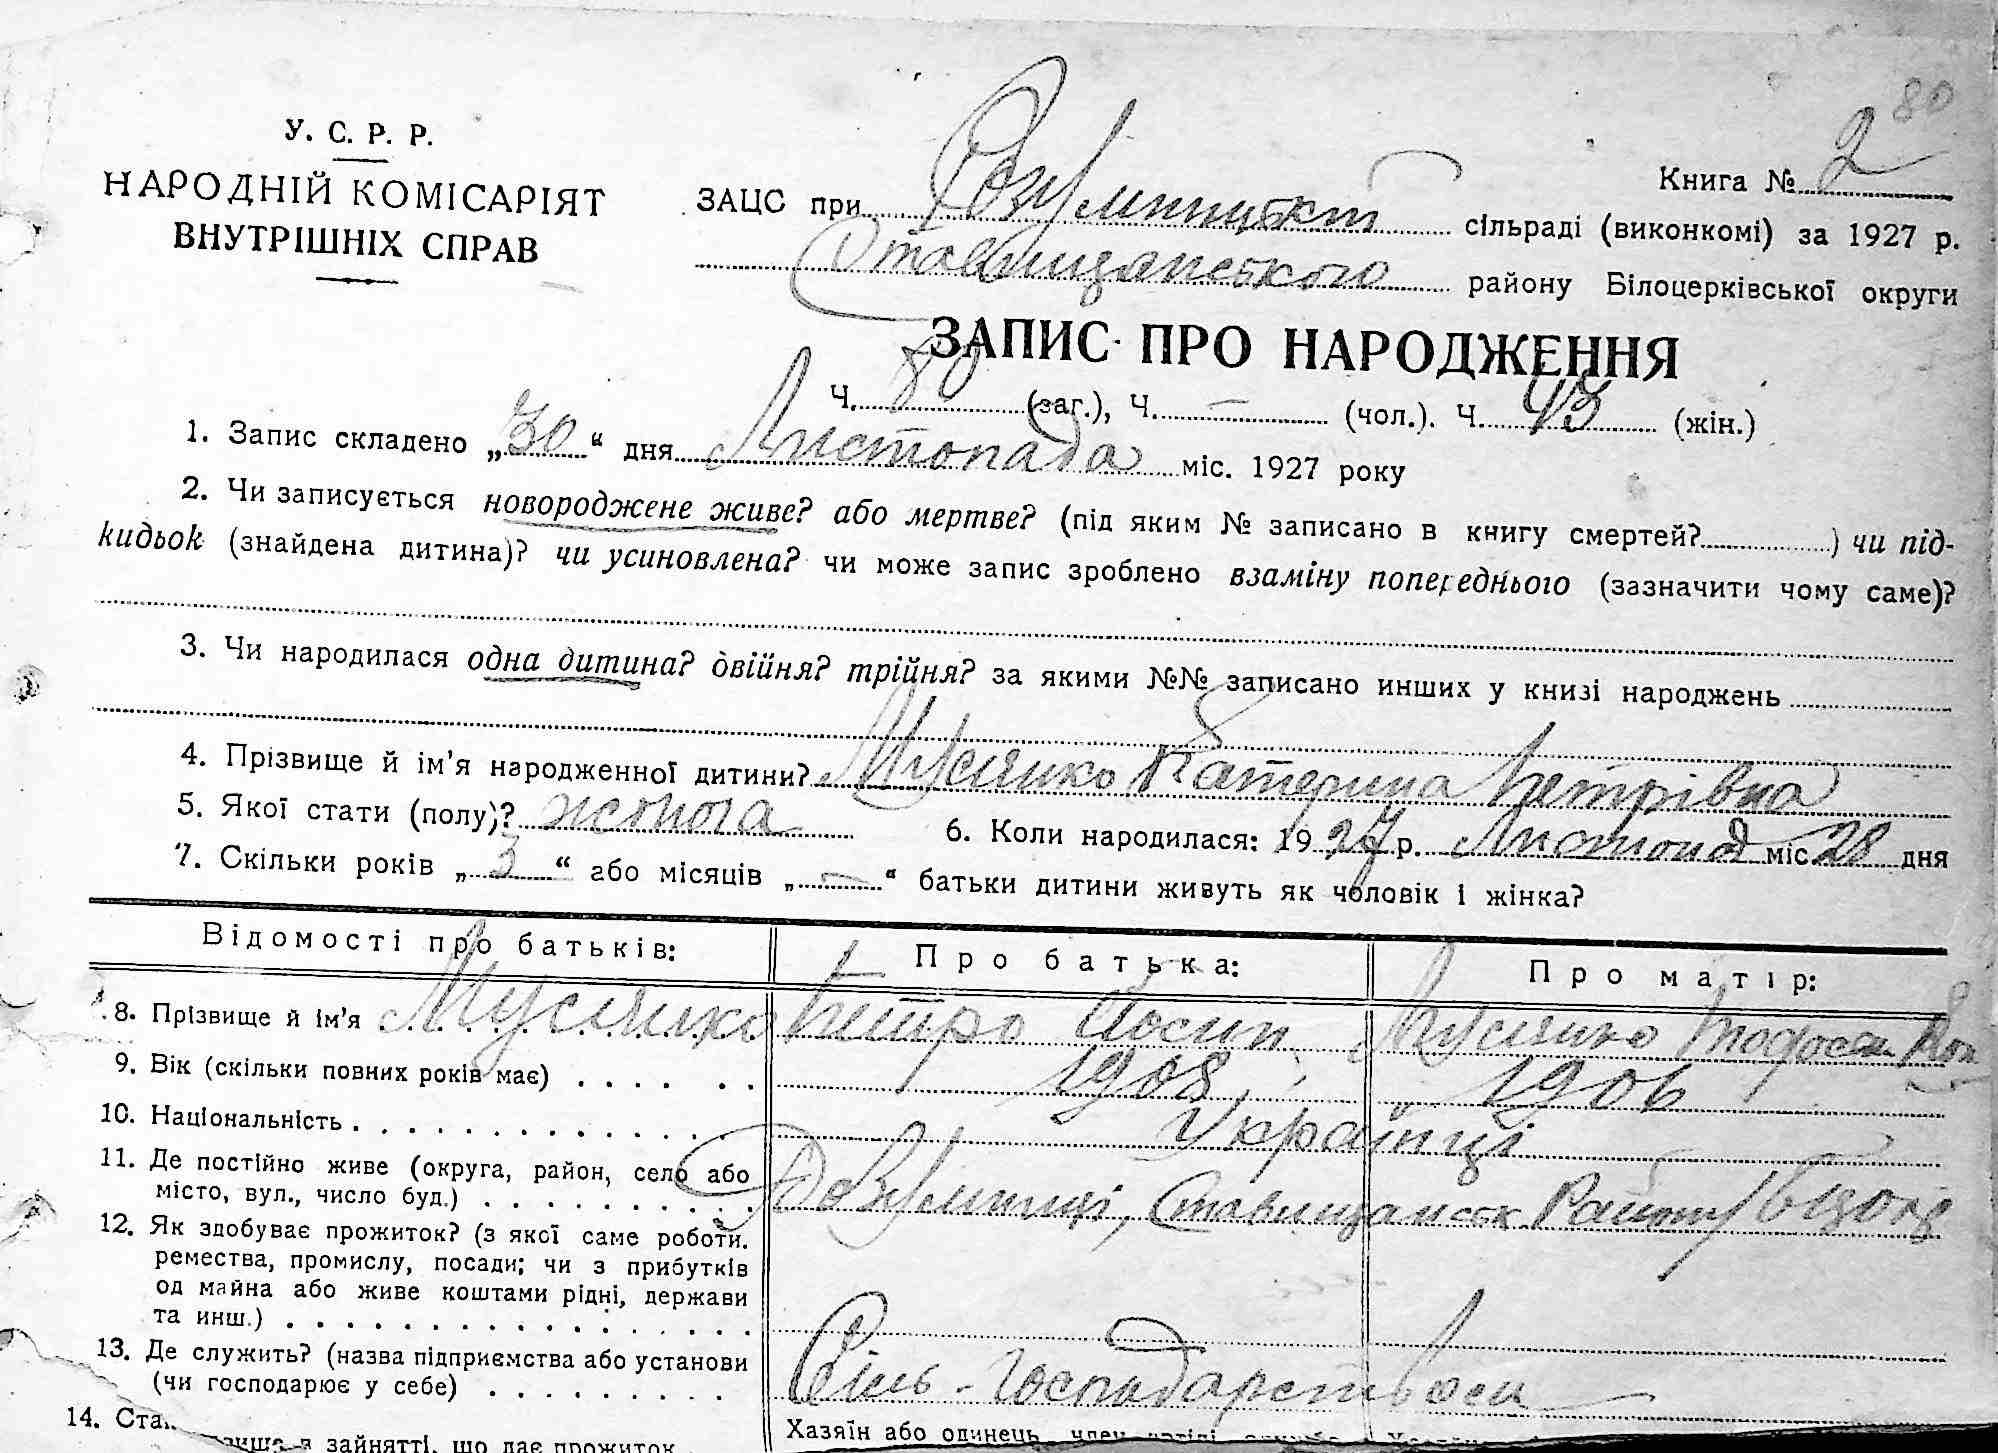 80
У. С. Р. Р.
НАРОДНІЙ КОМІСАРІЯТ
ВНУТРІШНІХ СПРАВ
Книга № 2
ЗАЦС при Розумницькій сільраді (виконкомі) за 1927 р.
Ставищанського району Білоцерківської округи
ЗАПИС ПРО НАРОДЖЕННЯ
Ч. 80 (заг.), Ч. – (чол.). Ч. 43 (жін.)
1. Запис складено „30“ дня Листопада міс. 1927 року
2. Чи записується новороджене живе? або мертве? (під яким № записано в книгу смертей? ) чи під-
кидьок (знайдена дитина)? чи усиновлена? чи може запис зроблено взаміну попереднього (зазначити чому саме)?
3. Чи народилася одна дитина? двійня? трійня? за якими №№ записано инших у книзі народжень
4. Прізвище й ім'я народженної дитини? Мусіянко Катерина Петрівна
5. Якої стати (полу)? жіноча 6. Коли народилася: 1927 р. Листопад міс. 28 дня
7. Скільки років „3“ або місяців „–“ батьки дитини живуть як чоловік і жінка?
Відомості про батьків: Про батька: Про матір:
8. Прізвище й ім'я Мусіянко Петро Йосип. Мусіянко Тодоська
9. Вік (скільки повних років має) 1908 1906
10. Національність Українці
11. Де постійно живе (округа, район, село або
місто, вул., число буд.) Розумниці, Ставищанськ. Району
12. Як здобуває прожиток? (з якої саме роботи.
ремества, промислу, посади; чи з прибутків
од майна або живе коштами рідні, держави
та инш.)
13. Де служить? (назва підприємства або установи
(чи господарює у себе) Сіль-господарством
14. Ста
зайнятті, що дає прожиток
Хазяїн або одинець, член